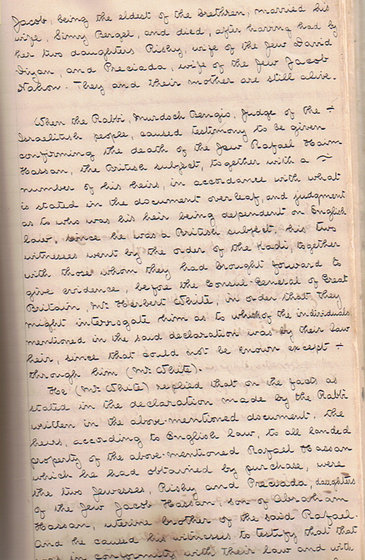 Jacob, being the eldest of the brethren, married his
wife, Simny Bengel, and died, after having had by
her two daughters Risky, wife of the Jew David
and Preciada, wife of the Jew Jacob
Nahon. They and their mother are still alive.
When the Rabbi, Murdoch Bengio, Judge of the +
Israelitish people, caused testimony to be given
confirming the death of the Jew Rafael Haim
Hassan, the British subject, together with a ~
number of his heirs, in accordance with what
is stated in the document overleaf, and judgment
as to who was his heir being dependent on English
law, since he was a British subject, his two
witnesses went by the order of the Kadi, together
with those whom they had brought forward to
give evidence, before the Consul-General of Great
Britain, Mr Herbert White, in order that they
might interrogate him as to which of the individuals
mentioned in the said declaration was by their law
heir, since that could not be known except +
through him (Mr White).
He (Mr White) replied that on the facts as
stated in the declaration made by the Rabbi
written in the above-mentioned document, the
heirs, according to English law, to all landed
property of the above-mentioned Rafael Hassan
which he had obtained by purchase, were
the two Jewesses, Risky and Preciada, daughters
of the Jew Jacob Hassan, son of Abraham
Hassan, uterine brother of the said Rafael.
And he caused his witnesses to testify that that
was in conformity with their law and with